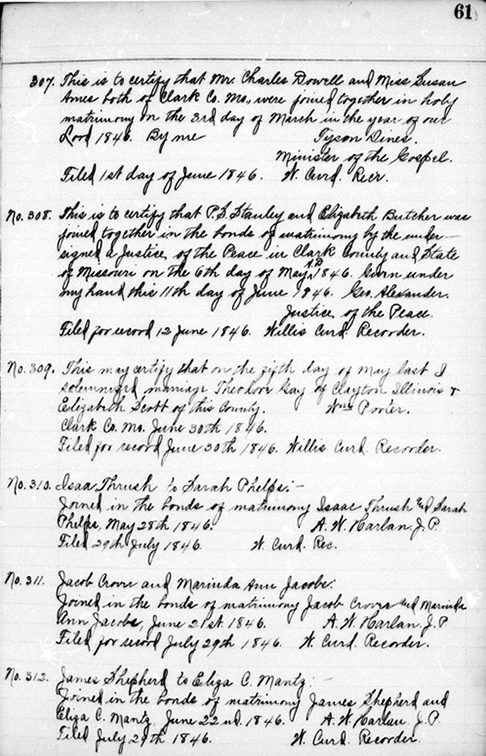 61
307. This is to certify that Mr. Charles Dowell and Miss Susan
Ames both of Clark Co. Mo., were joined together in holy
matrimony on the 3rd day of March in the year of our
Lord 1846. By me Tyson Dines.
Minister of the Gospel.
Filed 1st day of June 1846. W. Curd. Recr.
No. 308. This is to certify that P. S. Stanley and Elizabeth Butcher was
joined together in the bonds of matrimony by the under-
signed a Justice, of the Peace in Clark County and State
of Missouri on the 6th day of May, A.D. 1846. Given under
my hand this 11th day of June 1846. Geo. Alexander.
Justice, of the Peace.
Filed for record 12 June 1846. Willis Curd. Recorder.
No. 309. This may certify that on the fifth day of May last I
solemnized marriage Theodore Gay of Clayton Illinois &
Elizabeth Scott of this County. Wm Porter.
Clark Co. Mo. June 30th 1846.
Filed for record June 30th 1846. Willis Curd. Recorder.
No. 310. Isaac Thrush to Sarah Phelps:-
Joined in the bonds of matrimony Isaac Thrush and Sarah
Phelps, May 28th 1846. A. W. Harlan J. P.
Filed 29th July 1846. W. Curd. Rec.
No. 311. Jacob Crovs and Marinda Ann Jacobs.
Joined in the bonds of matrimony Jacob Crovs and Marinda
Ann Jacobs, June 21st. 1846. A. W. Harlan, J. P
Filed for record July 29th 1846. W. Curd. Recorder.
No. 312. James Shepherd to Eliza C. Mantz:-
Joined in the bonds of matrimony James Shepherd and
Eliza C. Mantz. June 22nd. 1846. A. W. Harlan J. P.
Filed July 29th 1846. W. Curd. Recorder.